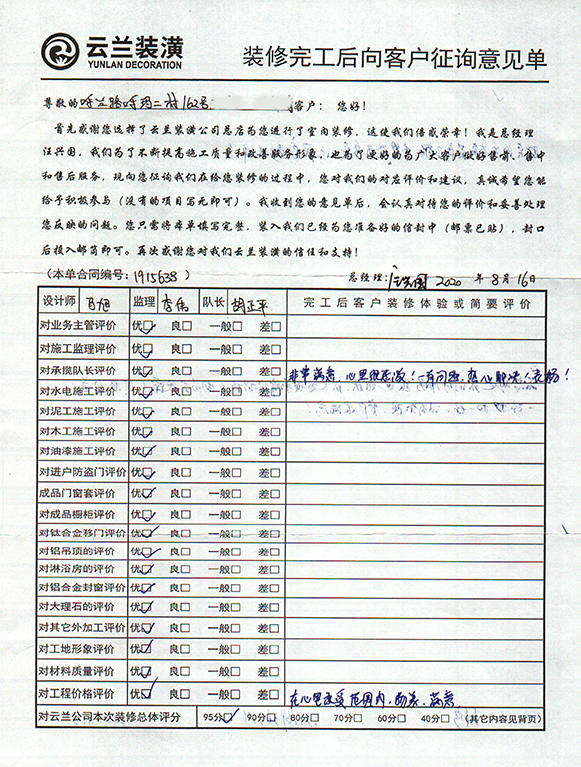 云兰装潢
YUNLAN DECORATION
装修完工后向客户征询意见单
尊敬的呼兰路呼玛二村162号 客户： 您好！
首先感谢您选择了云兰装潢公司总店为您进行了室内装修，这使我们倍感荣幸！我是总经理
汪兴国，我们为了不断提高施工质量和改善服务形象，也为了更好的为广大客户做好售前、售中
和售后服务，现向您征询我们在给您装修的过程中，您对我们的对应评价和建议，真诚希望您能
给予积极参与（没有的项目写无即可）。我收到您的意见单后，会认真对待您的评价和妥善处理
您反映的问题。您只需将本单填写完整，装入我们已经为您准备好的信封中（邮票已贴），封口
后投入邮筒即可。再次感谢您对我们云兰装潢的信任和支持！
（本单合同编号：1915638 ） 总经理：汪兴国 2020 年 8 月 16 日
设计师 马旭 监理 李伟 队长 胡正平 完工后客户装修体验或简要评价
对业务主管评价 优 良 一般 差
对施工监理评价 优 良 一般 差
对承揽队长评价 优 良 一般 差 非常满意，心里很感激！一有问题，热心解决
对水电施工评价 优 良 一般 差
对泥工施工评价 优 良 一般 差
对木工施工评价 优 良 一般 差
对油漆施工评价 优 良 一般 差
对进户防盗门评价 优 良 一般 差
成品门窗套评价 优 良 一般 差
对成品橱柜评价 优 良 一般 差
对钛合金移门评价 优 良 一般 差
对铝吊顶的评价 优 良 一般 差
对淋浴房的评价 优 良 一般 差
对铝合金封窗评价 优 良 一般 差
对大理石的评价 优 良 一般 差
对其它外加工评价 优 良 一般 差
对工地形象评价 优 良 一般 差
对材料质量评价 优 良 一般 差
对工程价格评价 优 良 一般 差 在心里承受范围内，满意
对云兰公司本次装修总体评分 95分 90分 80分 70分 60分 40分 （其它内容见背页）